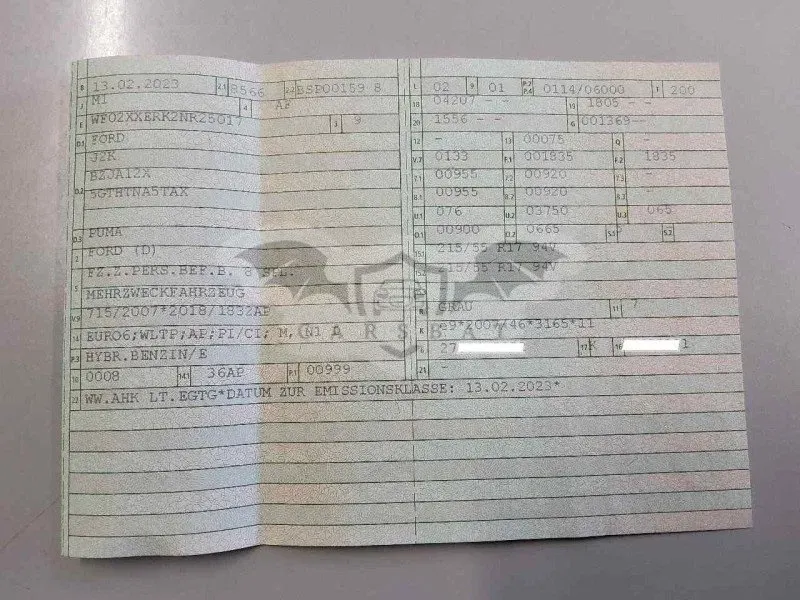 B 13.02.2023 2.1 8566 2.2 BSP00159 8
J M1 4 AF
E WF02XXERK2NR25017 3 9
D.1 FORD
J2K
D.2 BZJA12X
5GTHTNA5TAX
D.3 PUMA
2 FORD (D)
5 FZ.Z.PERS.BEF.B. 8 SPL.
MEHRZWECKFAHRZEUG
V.9 715/2007*2018/1832AP
14 EURO6;WLTP;AP;PI/CI; M, N1
P.3 HYBR.BENZIN/E
10 0008 14.1 36AP P.1 00999
22 WW.AHK LT.EGTG*DATUM ZUR EMISSIONSKLASSE: 13.02.2023*
L 02 9 01 P.2 P.4 0114/06000 T 200
18 04207 - - 19 1805 - -
20 1556 - - G 001369--
12 - 13 00075 Q -
V.7 0133 F.1 001835 F.2 1835
7.1 00955 7.2 00920 7.3 -
8.1 00955 8.2 00920 8.3 -
U.1 076 U.2 03750 U.3 065
O.1 00900 O.2 0665 S.1 S.2
15.1 215/55 R17 94V
215/55 R17 94V
R GRAU 11 7
K e9*2007/46*3165*11
6 27 17 K 16 1
21 -
CARSBAT